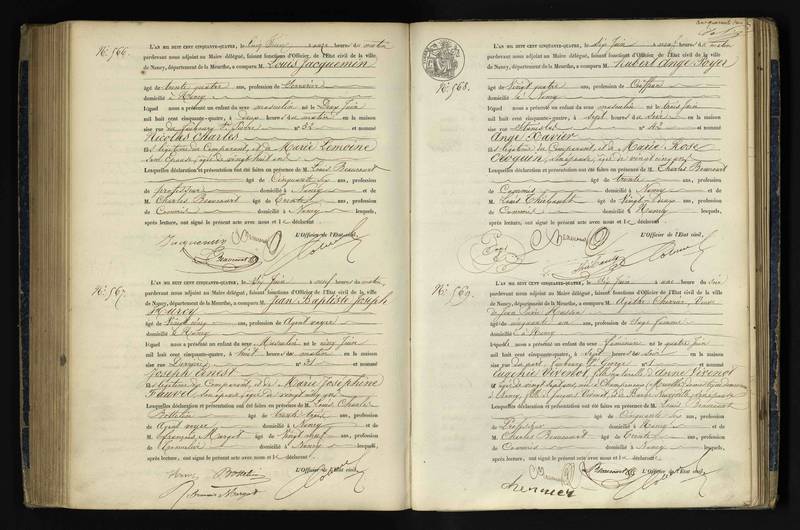 N° 566.
L'AN MIL HUIT CENT CINQUANTE-QUATRE, le Cinq Juin à onze heures du matin
pardevant nous adjoint au Maire délégué, faisant fonctions d'Officier de l'État civil de la ville
de Nancy, département de la Meurthe, a comparu M. Louis Jacquemin
âgé de trente quatre ans, profession de Serrurier
domicilié à Nancy
lequel nous a présenté un enfant du sexe masculin né le Deux Juin
mil huit cent cinquante-quatre, à Deux heures du matin en la maison
sise rue du faubourg St Pierre n° 32 et nommé
Nicolas Charles
fils légitime du Comparant, et de Marie Lemoine
son Epouse, âgée de vingt huit ans
Lesquelles déclaration et présentation ont été faites en présence de M. Louis Beaucourt
âgé de Cinquante six ans, profession
de professeur domicilié à Nancy et de
M. Charles Beaucourt âgé de Trente ans, profession
de Commis domicilié à Nancy lesquels,
après lecture, ont signé le présent acte avec nous et le déclarant
L'Officier de l'État civil,
Jacquemin
Beaucourt
N° 567.
L'AN MIL HUIT CENT CINQUANTE-QUATRE, le Six Juin à neuf heures du matin,
pardevant nous adjoint au Maire délégué, faisant fonctions d'Officier de l'État civil de la ville
de Nancy, département de la Meurthe, a comparu M. Jean Baptiste Joseph
âgé de vingt cinq ans, profession de Agent voyer
domicilié à Nancy
lequel nous a présenté un enfant du sexe Masculin né le cinq Juin
mil huit cent cinquante-quatre, à huit heures du matin en la maison
sise rue n° 31 et nommé
Joseph Ernest
fils légitime du Comparant, et de Marie Joséphine
Fauvel son épouse, âgée de vingt cinq ans
Lesquelles déclaration et présentation ont été faites en présence de M. Louis Charles
Bottelin âgé de trente trois ans, profession
de Agent voyer domicilié à Nancy et de
M. François Margot âgé de vingt neuf ans, profession
de domicilié à Nancy lesquels,
après lecture, ont signé le présent acte avec nous et le déclarant
L'Officier de l'État civil,
N° 568.
L'AN MIL HUIT CENT CINQUANTE-QUATRE, le Six Juin à neuf heures du matin
pardevant nous adjoint au Maire délégué, faisant fonctions d'Officier de l'État civil de la ville
de Nancy, département de la Meurthe, a comparu M. Hubert Ange Poyer
âgé de Vingt quatre ans, profession de Coiffeur
domicilié à Nancy
lequel nous a présenté un enfant du sexe masculin né le trois Juin
mil huit cent cinquante-quatre, à Sept heures du soir en la maison
sise rue Stanislas n° 42 et nommé
Ange Xavier
fils légitime du Comparant, et de Marie Rose
Croquin son épouse, âgée de vingt cinq ans
Lesquelles déclaration et présentation ont été faites en présence de M. Charles Beaucourt
âgé de trente ans, profession
de Commis domicilié à Nancy et de
M. Louis Thiébault âgé de Vingt-Deux ans, profession
de Commis domicilié à Nancy lesquels,
après lecture, ont signé le présent acte avec nous et le déclarant
L'Officier de l'État civil,
Beaucourt
N° 569.
L'AN MIL HUIT CENT CINQUANTE-QUATRE, le Six Juin à une heure du soir
pardevant nous adjoint au Maire délégué, faisant fonctions d'Officier de l'État civil de la ville
de Nancy, département de la Meurthe, a comparu M. Veuve
âgée de cinquante un ans, profession de Sage femme
domiciliée à Nancy
lequel nous a présenté un enfant du sexe féminin né le quatre Juin
mil huit cent cinquante-quatre, à Sept heures du soir en la maison
sise rue du faubourg St George n° 21 et nommé
Eugénie Virenot, fille naturelle d'Anne Virenot
Lesquelles déclaration et présentation ont été faites en présence de M. Louis Beaucourt
âgé de Cinquante six ans, profession
de Professeur domicilié à Nancy et de
M. Charles Beaucourt âgé de Trente ans, profession
de Commis domicilié à Nancy lesquels,
après lecture, ont signé le présent acte avec nous et le déclarant
L'Officier de l'État civil,
Beaucourt